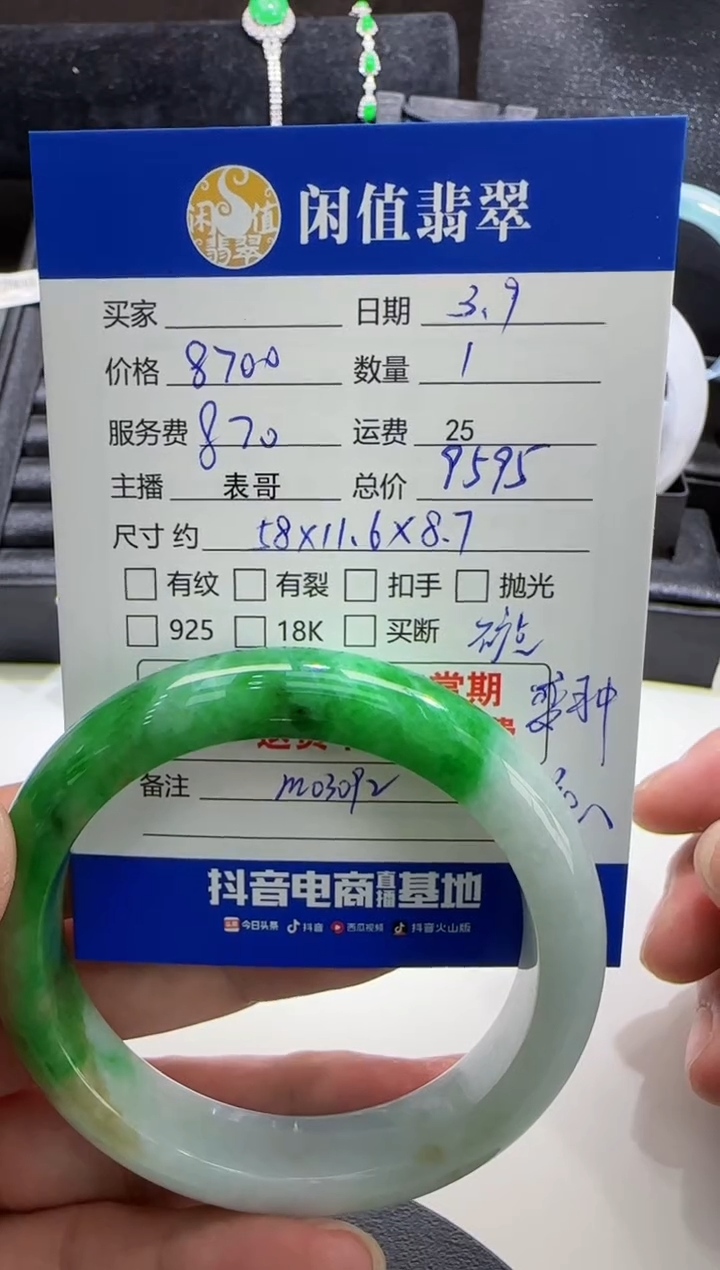 闲值翡翠
闲值翡翠
买家 日期 3.9
价格 8700 数量 1
服务费 870 运费 25
主播 表哥 总价 9595
尺寸 约 58×11.6×8.7
有纹 有裂 扣手 抛光
925 18K 买断 矿点
常期
变种
备注 M03092
抖音电商直播基地
今日头条 抖音 西瓜视频 抖音火山版